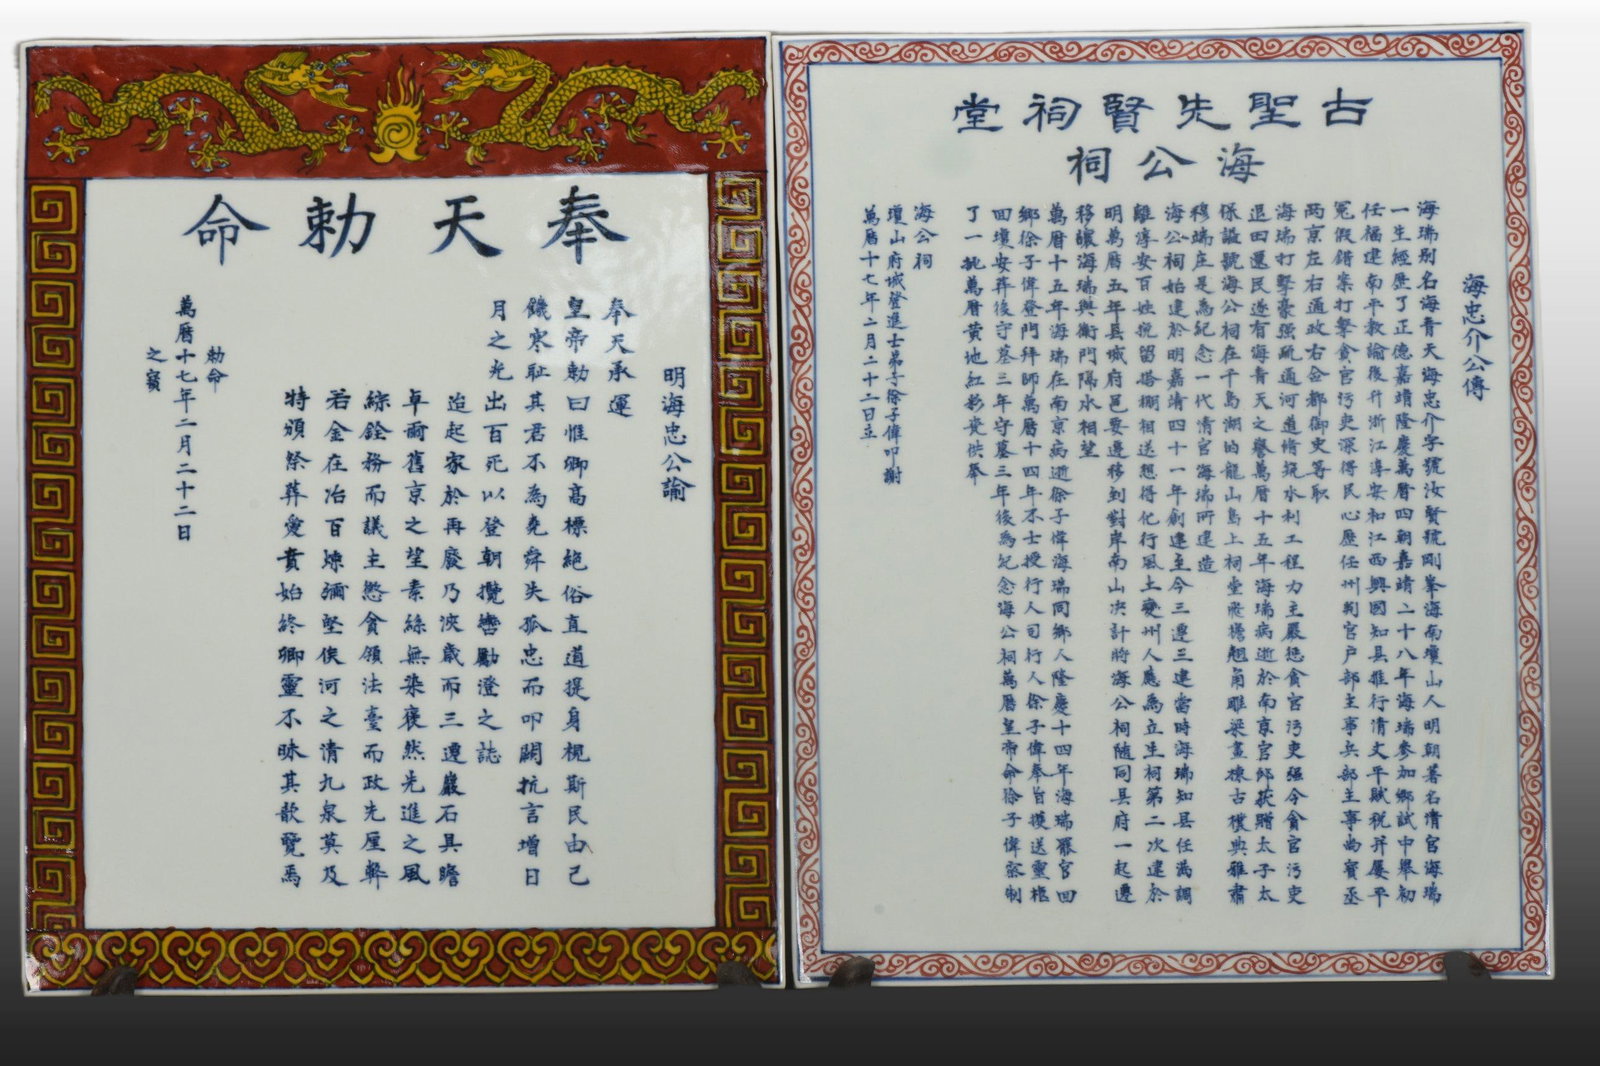 古聖先賢祠堂
海公祠
海忠介公傳
海瑞别名海青天海忠介字號汝賢號剛峯海南瓊山人明朝著名清官海瑞
一生經歷了正德嘉靖隆慶萬曆四朝嘉靖二十八年海瑞參加鄉試中舉初
任福建南平教諭後升浙江淳安和江西興國知县推行清丈平賦税并屡平
冤假錯案打擊貪官污吏深得民心歷任州判官户部主事兵部主事尚寶丞
兩京左右通政右佥都御史等职
海瑞打擊豪强疏通河道脩筑水利工程力主嚴惩貪官污吏强令貪官污吏
退田還民遂有海青天之譽萬曆十五年海瑞病逝於南京官邸获贈太子太
保諡號海公祠在千島湖的龍山島上祠堂飛檐翹角雕梁畫棟古樸典雅肅
穆端庄是為紀念一代清官海瑞所建造
海公祠始建於明嘉靖四十一年創建至今三遷三建當時海瑞知县任满調
離淳安百姓挽留搭棚相送想得化行風土變州人應為立生祠第二次建於
明萬曆五年县城府邑要遷移到對岸南山决計將海公祠随同县府一起遷
移讓海瑞與衙門隔水相望
萬曆十五年海瑞在南京病逝徐子偉海瑞同鄉人隆慶十四年海瑞罷官回
鄉徐子偉登門拜師萬曆十四年不士授行人司行人徐子偉奉旨護送靈柩
回瓊安葬後守墓三年守墓三年後為纪念海公祠萬曆皇帝命徐子偉密制
了一批萬曆黄地紅彩瓷供奉
海公祠
瓊山府城登進士弟子徐子偉叩謝
萬曆十七年二月二十二日立
奉天勅命
明海忠公諭
奉天承運
皇帝勅曰惟卿高標絶俗直道提身視斯民由己
饑寒耻其君不為堯舜失孤忠而叩闕抗言增日
月之光出百死以登朝攬轡勵澄之誌
迨起家於再廢乃浹歲而三遷巖石具瞻
卓爾舊京之望素絲無染褒然先進之風
綜銓務而議主懲貪領法臺而政先厘弊
若金在冶百煉彌堅俟河之清九泉莫及
特頒祭葬爰賁始終卿靈不昧其歆覽焉
勅命
萬曆十七年二月二十二日
之寶